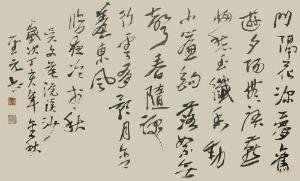 門隔花深夢舊
游夕陽無語燕
歸愁玉纖香動
小簾鉤落絮無
聲春墮淚
行雲有影月含
羞東風
臨夜冷於秋
吳文英浣溪沙
歲次丁亥年金秋